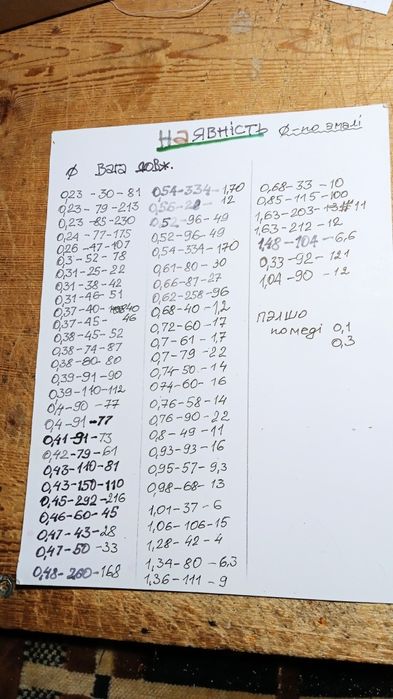 НаЯВНІСТЬ ø-по эмалі
ø Вага довж.
0,23 - 30 - 81
0,23 - 79 - 213
0,23 - 85 - 230
0,24 - 77 - 175
0,26 - 47 - 107
0,3 - 52 - 78
0,31 - 25 - 22
0,31 - 38 - 42
0,31 - 46 - 51
0,37 - 40 - 40
0,37 - 45 - 46
0,38 - 45 - 52
0,38 - 74 - 87
0,38 - 80 - 80
0,39 - 91 - 90
0,39 - 110 - 112
0,4 - 90 - 77
0,4 - 91 - 77
0,41 - 91 - 73
0,42 - 79 - 61
0,43 - 110 - 81
0,43 - 150 - 110
0,45 - 292 - 216
0,46 - 60 - 45
0,47 - 43 - 28
0,47 - 50 - 33
0,48 - 260 - 168
0,54 - 334 - 1,70
0,56 - 28 - 12
0,52 - 96 - 49
0,52 - 96 - 49
0,54 - 334 - 170
0,61 - 80 - 30
0,66 - 87 - 27
0,62 - 258 - 96
0,68 - 40 - 1,2
0,72 - 60 - 17
0,7 - 61 - 1,7
0,7 - 79 - 22
0,74 - 50 - 14
074 - 60 - 16
0,76 - 58 - 14
0,76 - 90 - 22
0,8 - 49 - 11
0,93 - 93 - 16
0,95 - 57 - 9,3
0,98 - 68 - 13
1,01 - 37 - 6
1,06 - 106 - 15
1,28 - 42 - 4
1,34 - 80 - 6,3
1,36 - 111 - 9
0,68 - 33 - 10
0,85 - 115 - 100
1,63 - 203 - 11
1,63 - 212 - 12
1,48 - 104 - 6,6
0,33 - 92 - 121
1,04 - 90 - 12
ПЭЛШО
по меді 0,1
0,3